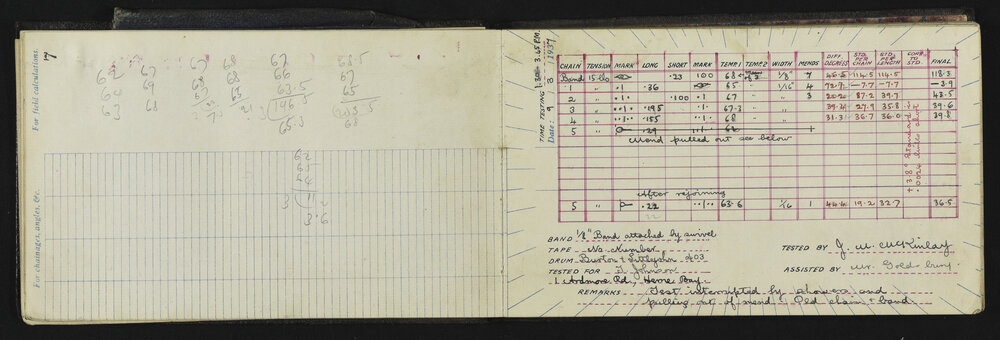 7
For field calculations.
62 67 67 68 67 68.5
64 69 68 68 66 67
63 68 63 65 63.5 65
196.5 203.5
65.3 68
For chainages, angles, &c.
62
65
64
3 11
3.6
TIME TESTING 1.30 - 3.45 P.M.
Date: 9 8 1937
CHAIN TENSION MARK LONG SHORT MARK TEMP.1 TEMP.2 WIDTH MENDS DIFF. DEGREES STD. PER CHAIN STD. PER LENGTH CORR. TO STD. FINAL
Band 15 lb .23 100 68 1/8" 7 45.5 114.5 114.5 118.3
1 " ·1· .36 65 1/16" 4 72.7 -7.7 -7.7 -3.9
2 " ·1· .100 ·1· 67 " 3 20.2 87.2 39.7 43.5
3 " ··1· .195 ·1· 67.3 39.4 27.9 35.8 39.6
4 " ··1·· .155 ·1· 68 31.3 36.7 36.0 39.8
5 " .29 ··1·· 62 1
Mend pulled out see below
+3.8° Standard
.0024 links short
After rejoining
5 " .22 ··1·· 63.6 1/16 1 44.4 19.2 32.7 36.5
22
BAND 1/8" Band attached by swivel
TAPE No Number TESTED BY J. M. McKinlay
DRUM Burton & Littlejohn 403
TESTED FOR J. Johnson ASSISTED BY Mr. Goldsbury
1 Ardmore Rd, Herne Bay
REMARKS Test interrupted by showers and
pulling out of mend. Old chain & band